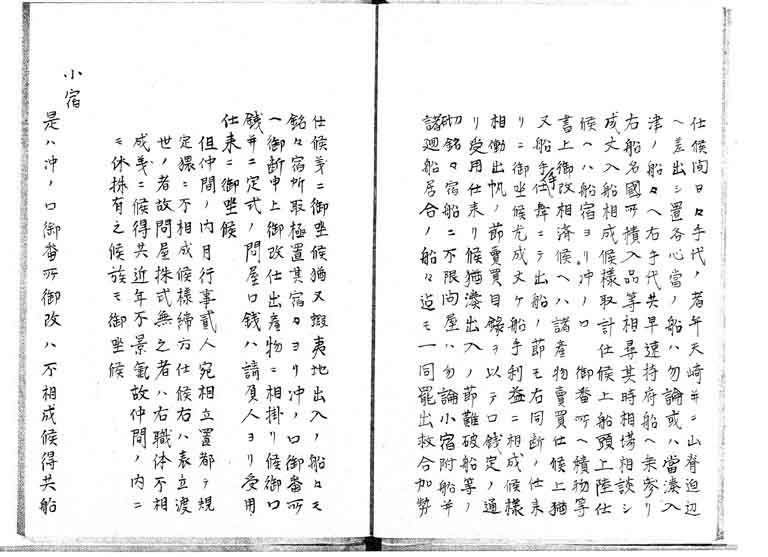 仕候間日々手代ノ者年天崎并ニ山脊迫辺
ヘ差出シ置各心當ノ船ハ勿論或ハ當湊入
津ノ船々ヘ右手代共早速持府船ヘ乗参リ
右船名國所積入品等相尋其時相場相談シ
成丈入船相成候様取計仕候上船頭上陸仕
候ヘハ船宿ヨリ沖ノ口御番所ヘ積物等
書上御改相済候ヘハ諸産物賣買仕候上猶
又船手仕舞ニテ出船ノ節モ右同断ノ仕来
リニ御坐候尤成丈ケ船手利益ニ相成候様
相働出帆ノ節賣買目録ヲ以テ口銭定ノ通
リ受用仕来リ候猶湊出入ノ節難破船等ノ
砌銘々宿船ニ不限問屋ハ勿論小宿附船并
諸廻船居合ノ船々迠モ一同罷出救合加勢
仕候義ニ御坐候猶又蝦夷地出入ノ船々モ
銘々宿所取極置其宿々ヨリ沖ノ口御番所
ヘ御断申上御改仕出産物ニ相掛リ候御口
銭并ニ定式ノ問屋口銭ハ請負人ヨリ受用
仕来ニ御坐候
但仲間ノ内月行事貳人宛相立置都テ規
定猥ニ不相成候様締方仕候右ハ表立渡
世ノ者故問屋株式無之者ハ右職体不相
成義ニ候得共近年不景氣故仲間ノ内ニ
モ休株有之候族モ御坐候
小宿
是ハ沖ノ口御番所御改ハ不相成候得共船